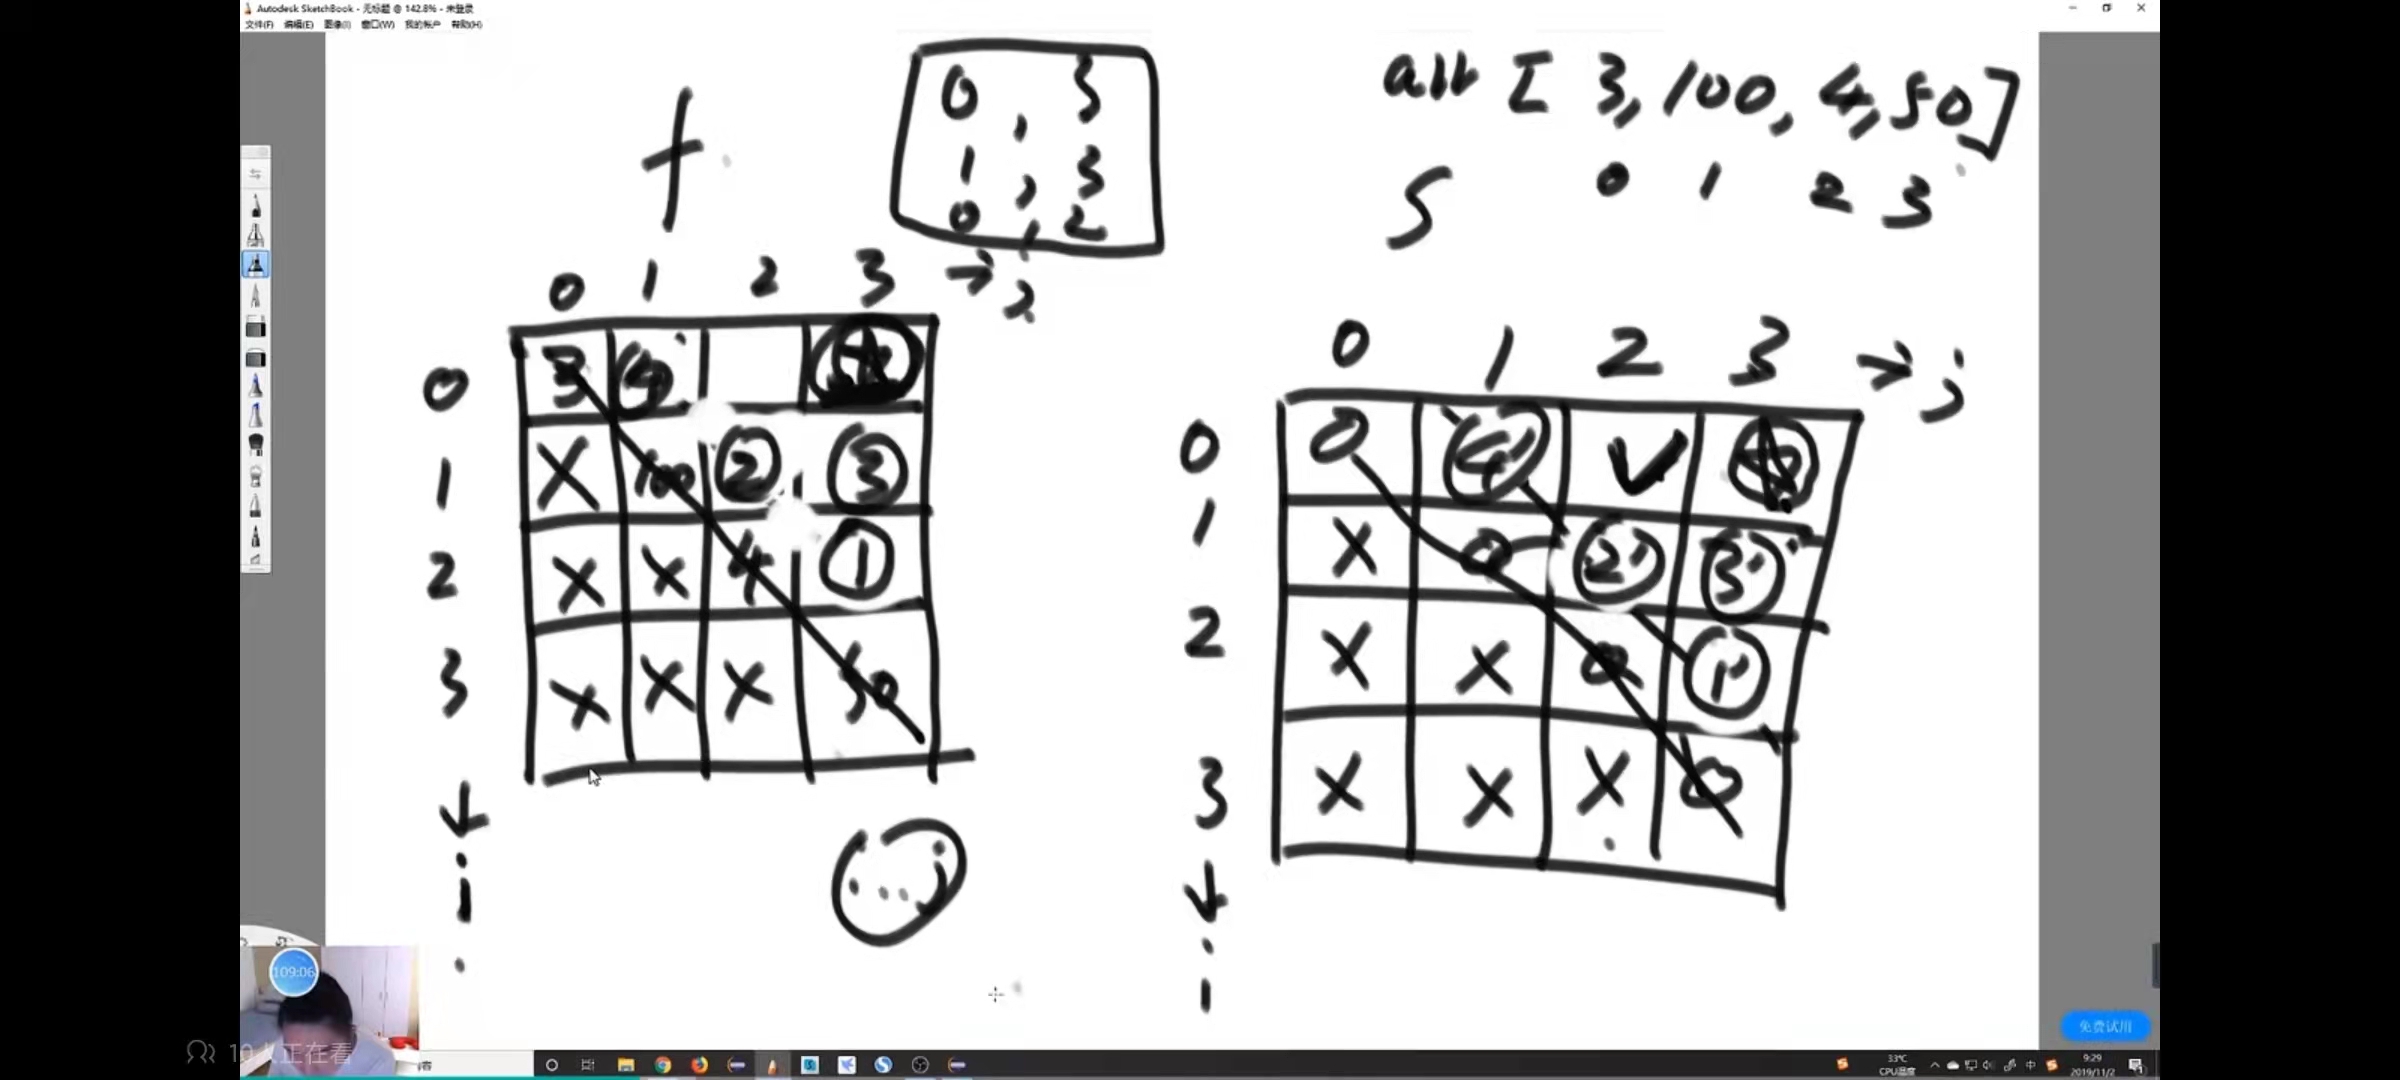 Autodesk SketchBook - 无标题 @ 142.8% - 未登录
文件(F) 编辑(E) 图像(I) 窗口(W) 我的帐户 帮助(H)
f
0 , 3
1 , 3
0 , 2
arr [ 3, 100, 4, 50 ]
S 0 1 2 3
0 1 2 3 → j
0 3 4
1 X 100 2 3
2 X X 4 1
3 X X X 50
↓
i
... j
0 1 2 3 → j
0 0 4'
1 X 0 2' 3'
2 X X 0 1'
3 X X X 0
↓
i
109:06
人正在看
免费试用
33℃
CPU温度
中
9:29
2019/11/2